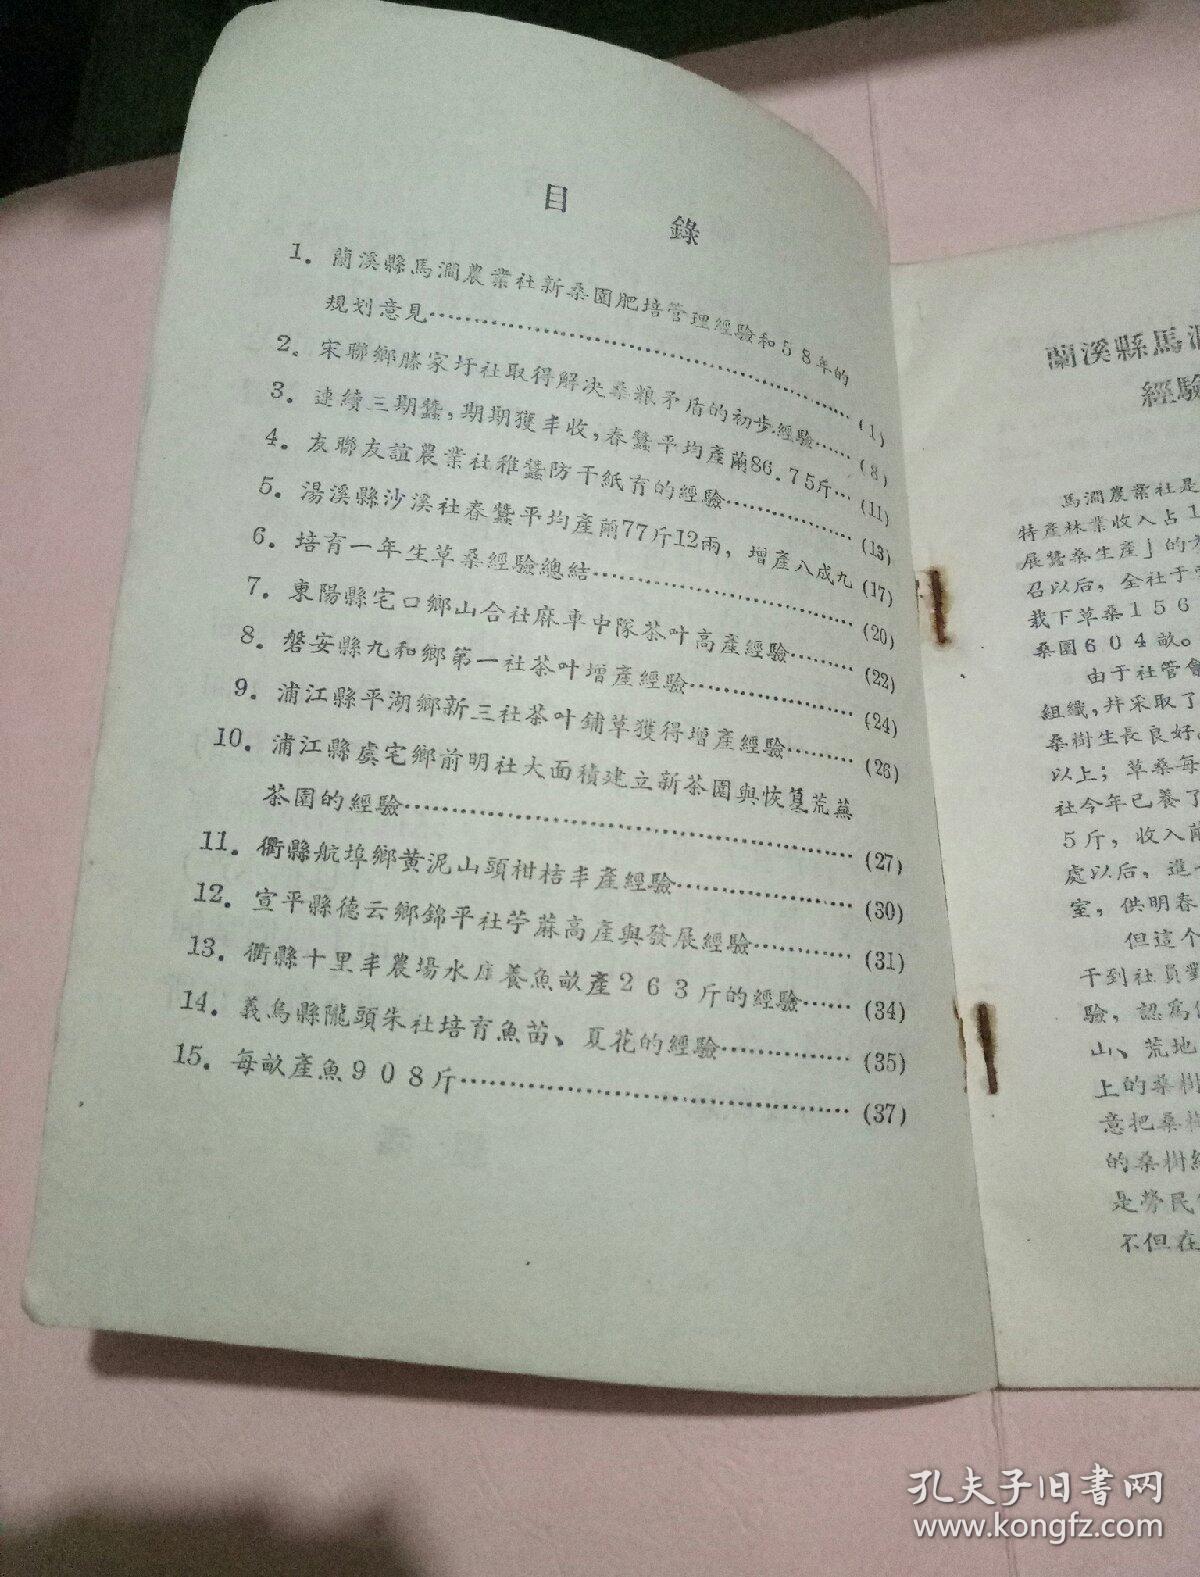 目 錄
1. 蘭溪縣馬澗農業社新桑園肥培管理經驗和58年的
規划意見……(1)
2. 宋聯鄉滕家圩社取得解决桑粮矛盾的初步經驗……(8)
3. 連續三期蠶，期期獲丰收，春蠶平均產繭86.75斤…(11)
4. 友聯友誼農業社稚蠶防干紙育的經驗……(13)
5. 湯溪縣沙溪社春蠶平均產繭77斤12兩，增產八成九 (17)
6. 培育一年生草桑經驗總結……(20)
7. 東陽縣宅口鄉山合社麻車中隊茶叶高產經驗……(22)
8. 磐安縣九和鄉第一社茶叶增產經驗……(24)
9. 浦江縣平湖鄉新三社茶叶鋪草獲得增產經驗……(26)
10. 浦江縣虞宅鄉前明社大面積建立新茶園與恢复荒蕪
茶園的經驗……(27)
11. 衢縣航埠鄉黄泥山頭柑桔丰產經驗……(30)
12. 宣平縣德云鄉錦平社苧蔴高產與發展經驗……(31)
13. 衢縣十里丰農場水庫養魚畝產263斤的經驗……(34)
14. 義烏縣隴頭朱社培育魚苗、夏花的經驗……(35)
15. 每畝產魚908斤……(37)
蘭溪縣馬
經驗
馬澗農業社是
特產林業收入占1
展蠶桑生產」的
召以后，全社于
栽下草桑156
桑園604畝。
由于社管會
組織，并采取了
桑樹生長良好
以上；草桑每
社今年已養了
5斤，收入
處以后，進
室，供明春
但這个
干到社員
驗，認爲
山、荒地
上的桑樹
意把桑
的桑樹
是勞民
不但在
孔夫子旧書网
www.kongfz.com